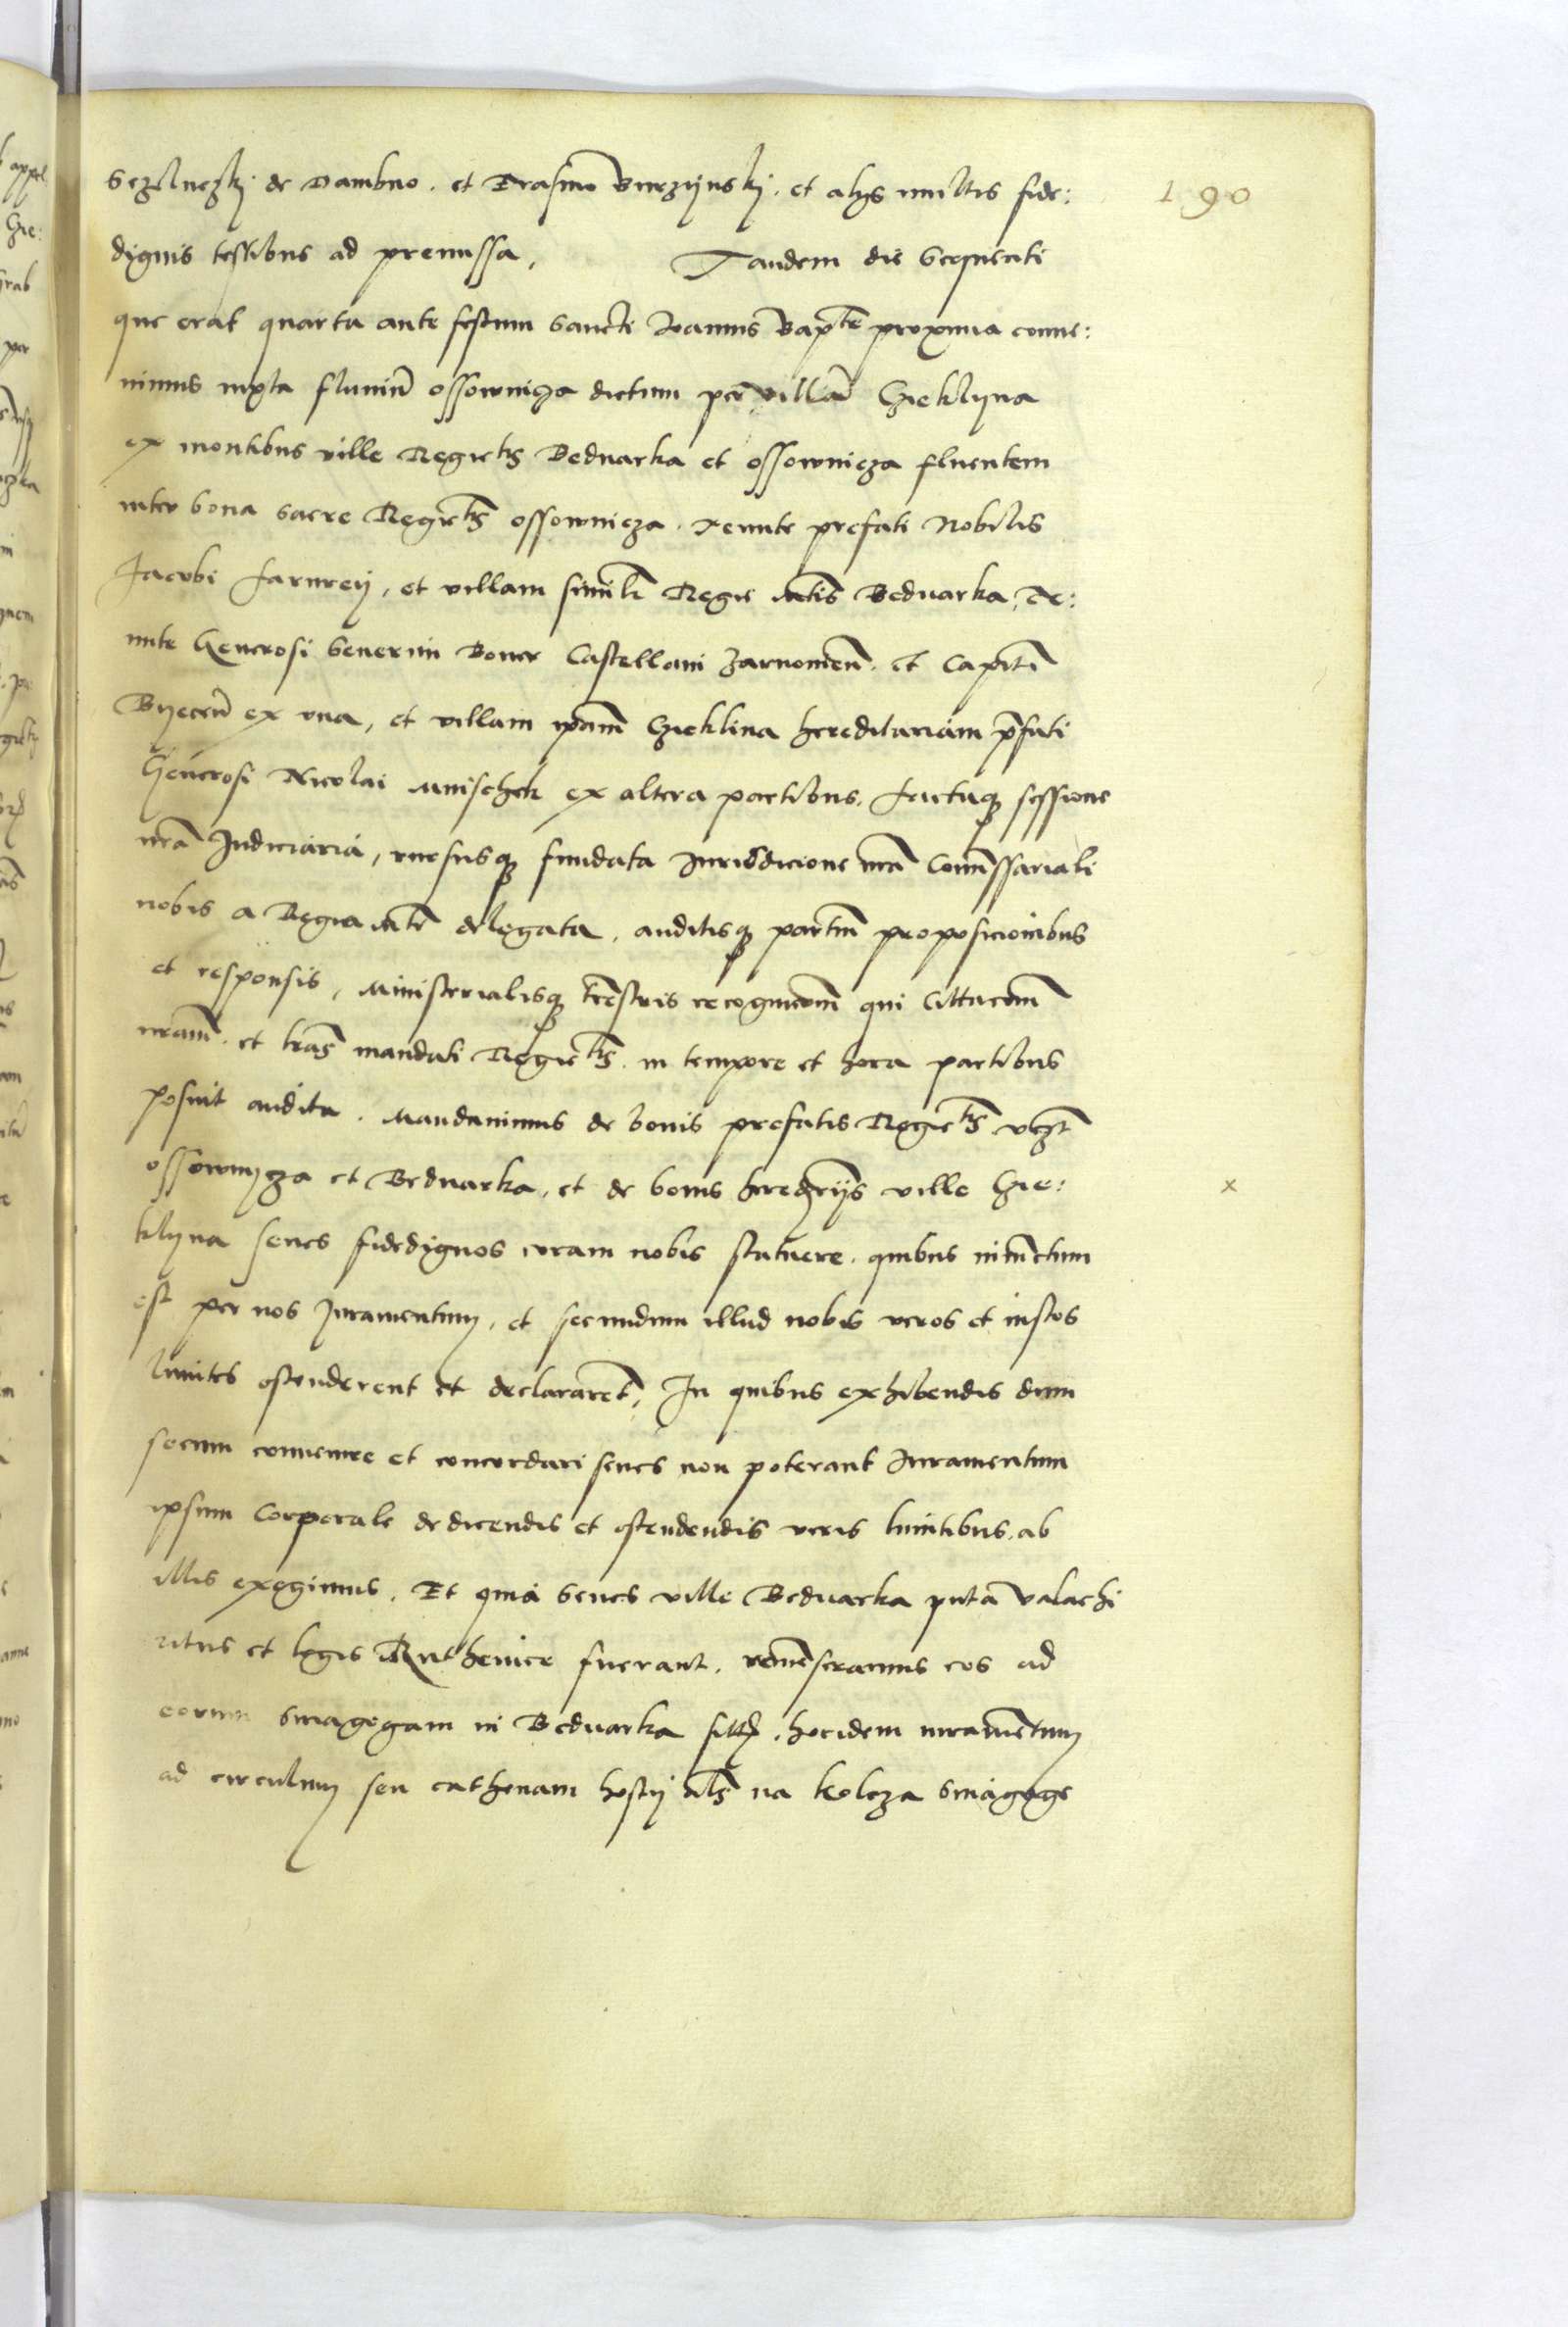 190
Sczilneczki de Dambno. et Erasmo Buczynski. et alijs multis fide:
dignis testibus ad premissa, Tandem die Sequenti
que erat quarta ante festum Sancti Joannis Bapte proxima conue:
nimus iuxta fluuiũ ossownicza dictum per villã Czieklyna
ex montibus ville Regie Mtis Bednarka et ossownicza fluentem
inter bona sacre Regie Mtis ossownicza. Tenute prefati Nobilis
Jacobi farurei, et villam similr Regie Mtis Bednarka, Te:
nute Generosi Seuerini Boner Castellani Zarnowien. et Capiti
Byecen ex vna, et villam ipam Czieklina hereditariam pfati
Generosi Nicolai Mnischek ex altera partibus. factaq sessione
nrã Judiciaria, rursusq fundata Jurisdicione nra Comissariali
nobis a Regia Mte delegata, auditisq partiũ proposicionibus
et responsis, Ministerialisq trestris recognicom qui Cittacom
nram. et lras mandati Regie Mtis. in tempore et hora partibus
posuit audita. Mandauimus de bonis prefatis Regie Mtis vczt
ossownycza et Bednarka, et de bonis heredrijs ville Czie: x
klyna senes fidedignos coram nobis statuere. quibus iniunctum
est per nos Juramentum, et secundum illud nobis veros et iustos
limites ostenderent et declararet, In quibus exhibendis dum
secum conuenire et concordari senes non poterant Juramentum
ipsum Corporale de dicendis et ostendendis veris limitibus. ab
illis exegimus. Et quia senes ville Bednarka puta Valachi
ritus et legis Ruthenice fuerant, eos ad
eorum sinagogam in Bednarka sitt. hocidem iuramentum
ad circulum seu cathenam hostij als na kolcza sinagoge